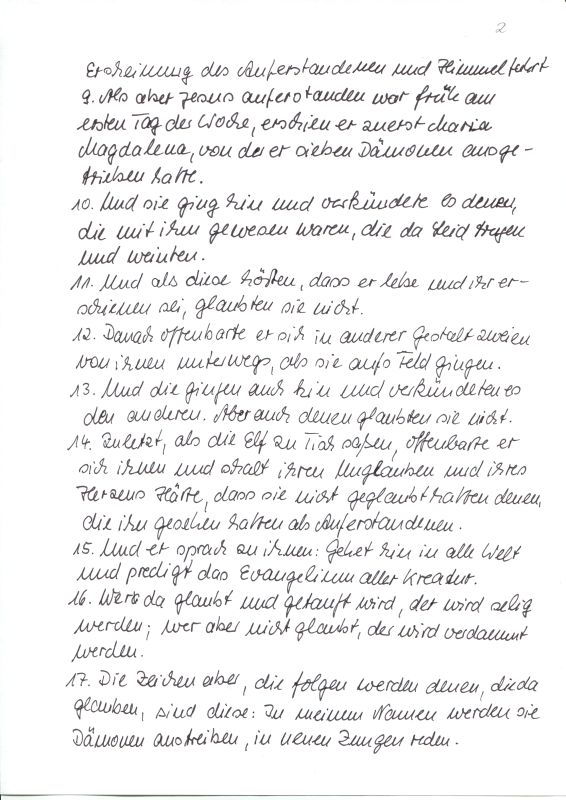 2
Erscheinung des Auferstandenen und Himmelfahrt
9. Als aber Jesus auferstanden war früh am
ersten Tag der Woche, erschien er zuerst Maria
Magdalena, von der er sieben Dämonen ausge-
trieben hatte.
10. Und sie ging hin und verkündete es denen,
die mit ihm gewesen waren, die da Leid trugen
und weinten.
11. Und als diese hörten, dass er lebe und ihr er-
schienen sei, glaubten sie nicht.
12. Danach offenbarte er sich in anderer Gestalt zweien
von ihnen unterwegs, als sie aufs Feld gingen.
13. Und die gingen auch hin und verkündeten es
den anderen. Aber auch denen glaubten sie nicht.
14. Zuletzt, als die Elf zu Tisch saßen, offenbarte er
sich ihnen und schalt ihren Unglauben und ihres
Herzens Härte, dass sie nicht geglaubt hatten denen,
die ihn gesehen hatten als Auferstandenen.
15. Und er sprach zu ihnen: Gehet hin in alle Welt
und predigt das Evangelium aller Kreatur.
16. Wer da glaubt und getauft wird, der wird selig
werden; wer aber nicht glaubt, der wird verdammt
werden.
17. Die Zeichen aber, die folgen werden denen, die da
glauben, sind diese: In meinem Namen werden sie
Dämonen austreiben, in neuen Zungen reden.